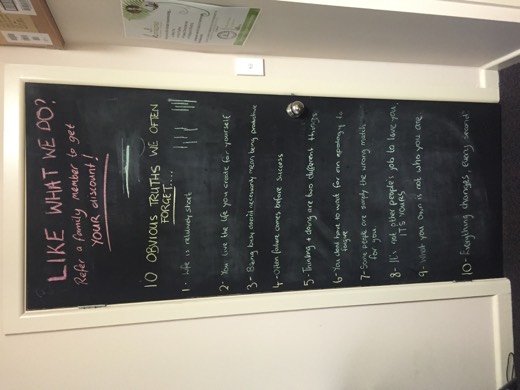 LIKE WHAT WE DO?
Refer a family member to get
YOUR discount!
10 OBVIOUS TRUTHS WE OFTEN
FORGET...
1 - Life is relatively short
2 - You live the life you create for yourself
3 - Being busy doesn't necessarily mean being productive
4 - Often failure comes before success
5 - Thinking + doing are two different things.
6 - You dont have to wait for an apology to
forgive
7 - Some people are simply the wrong match
for you.
8 - It's not other people's job to love you,
IT'S YOURS
9 - What you own is not who you are
10 - Everything changes, every second